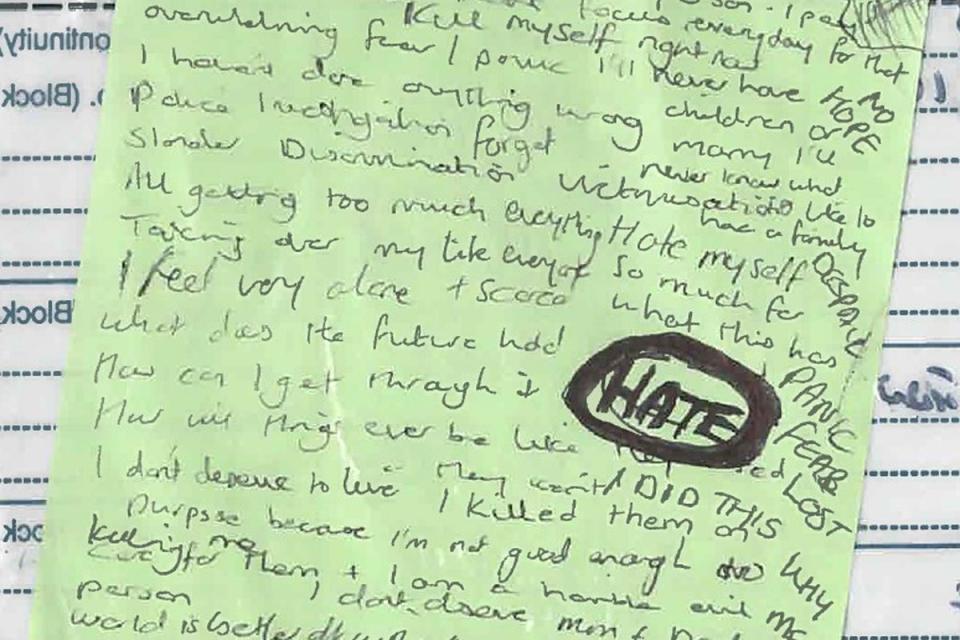 focus everyday for that
Kill myself right now
overwhelming fear / panic I'll never have
I haven't done anything wrong children or
Police investigation forget marry I'll
never know what
Slander Discrimination Victimisation its like to
have a family
All getting too much everything Hate myself
Taking over my life everyday So much for
I feel very alone + scared what this has
what does the future hold
How can I get through it
How will things ever be like
I don't deserve to live They went I DID THIS
I killed them on
purpose because I'm not good enough to
care for them + I am a horrible evil
person I don't deserve Mum + Dad
world is better
killing me
NO
HOPE
DESPAIR
PANIC
FEAR
LOST
HATE
WHY
ME
ontinuity)
. (Block
Block
ock